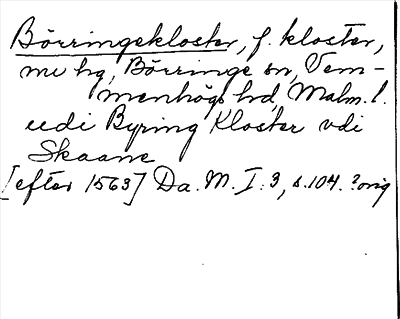 Börringekloster, f. kloster,
nu hg, Börringe sn, Vem-
menhögs hd, Malm. l.
udi Byring Kloster vdi
Skaane
[efter 1563] Da. M. I: 3, s. 104. ?orig